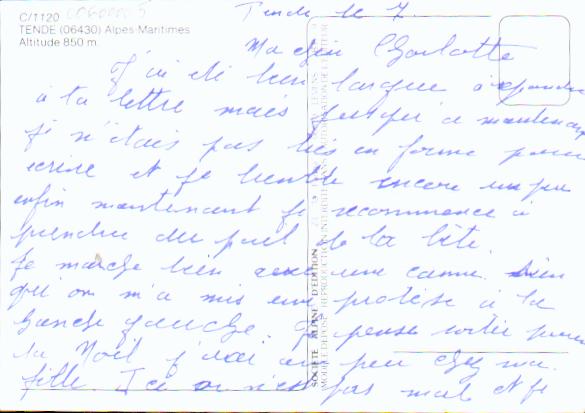 C/1120
TENDE (06430) Alpes-Maritimes
Altitude 850 m.
Tende le 7.
Ma chère Charlotte
J'ai été bien longue à répondre
à ta lettre mais jusqu'à maintenant
je n'étais pas très en forme pour
écrire et je tremble encore un peu
enfin maintenant je recommence à
prendre du poil de la bête.
Je marche bien avec une canne. bien
qu'on m'a mis une protèse à la
hanche gauche. Je pense sortir pour
la Noël j'irai un peu chez ma
fille Ici on n'est pas mal et je
SOCIÉTÉ ALPINE D'EDITION
MODELE DEPOSE. REPRODUCTION INTERDITE